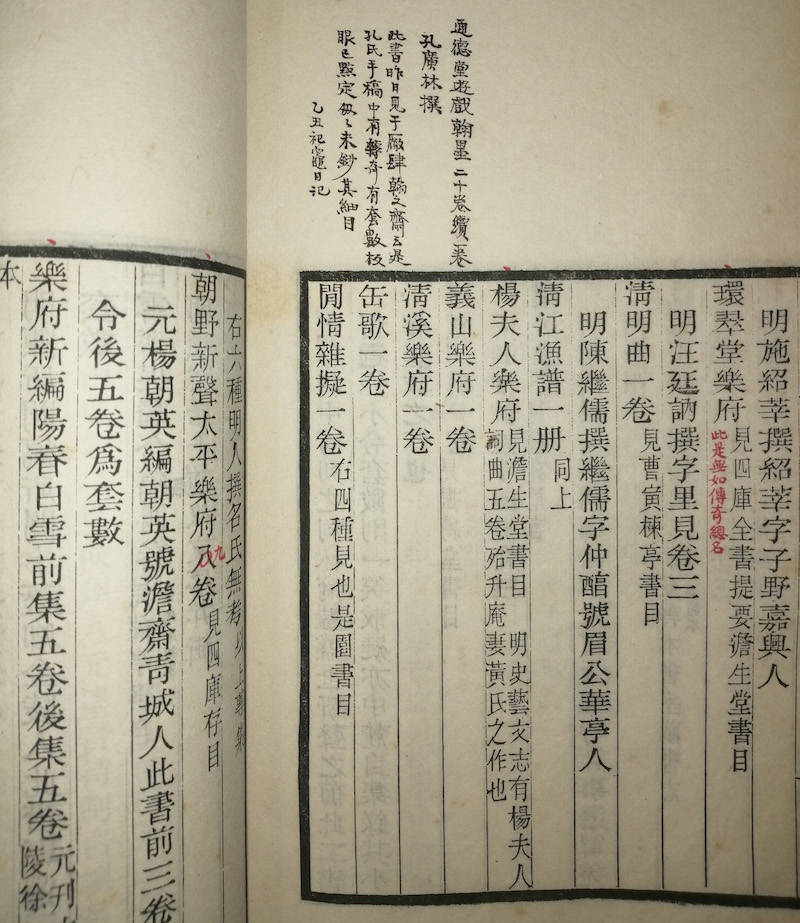 通德堂遊戲翰墨二十卷續一卷
孔廣林撰
此書昨日見于廠肆翰文齋云是
孔氏手稿中有雜奇有套數板
眼已點定匆匆未鈔其細目
乙丑祀竈日記
明施紹莘撰紹莘字子野嘉興人
環翠堂樂府見四庫全書提要澹生堂書目
此是無如傳奇總名
明汪廷訥撰字里見卷三
淸明曲一卷見曹寅楝亭書目
明陳繼儒撰繼儒字仲醕號眉公華亭人
淸江漁譜一册同上
楊夫人樂府見澹生堂書目 明史藝文志有楊夫人
詞曲五卷殆升庵妻黃氏之作也
義山樂府一卷
淸溪樂府一卷
缶歌一卷
閒情雜擬一卷右四種見也是園書目
右六種明人撰名氏無考以上
朝野新聲太平樂府八卷見四庫存目
九
元楊朝英編朝英號澹齋靑城人此書前三卷
令後五卷爲套數
樂府新編陽春白雪前集五卷後集五卷元刊
陵徐
本